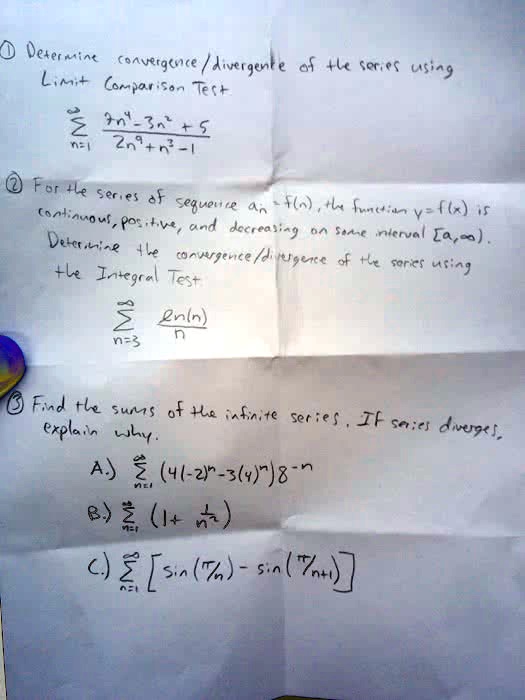 ① Determine convergence/divergence of the series using
Limit Comparison Test
∞ Σ n=1 (7n⁴-3n²+5)/(2n⁹+n³-1)
② For the series of sequence aₙ = f(n), the function y=f(x) is
continuous, positive, and decreasing on some interval [a,∞).
Determine the convergence/divergence of the series using
the Integral Test
∞ Σ n=3 ln(n)/n
③ Find the sums of the infinite series. If series diverges,
explain why.
A.) ∞ Σ n=1 (4(-2)ⁿ-3(4)ⁿ)8⁻ⁿ
B.) ∞ Σ n=1 (1+ 1/n²)
C.) ∞ Σ n=1 [sin(π/n) - sin(π/n+1)]